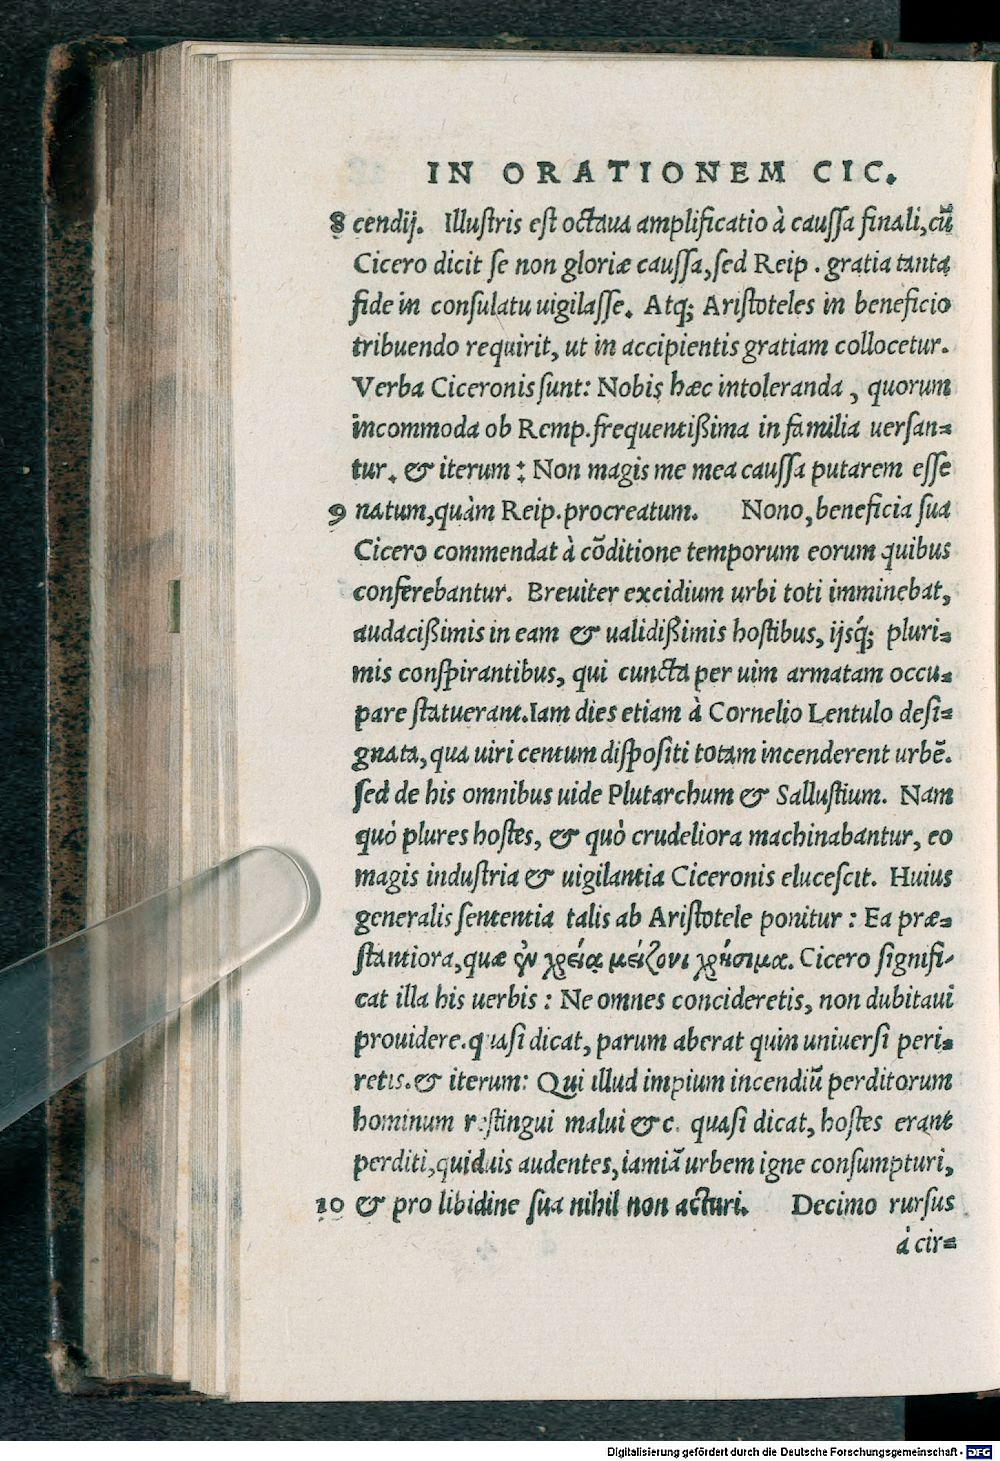 IN ORATIONEM CIC.
8 cendij. Illuſtris eſt octaua amplificatio à cauſſa finali, cũ
Cicero dicit ſe non gloriæ cauſſa, ſed Reip. gratia tanta
fide in conſulatu uigilaſſe. Atq; Ariſtoteles in beneficio
tribuendo requirit, ut in accipientis gratiam collocetur.
Verba Ciceronis ſunt: Nobis hæc intoleranda, quorum
incommoda ob Remp. frequentißima in familia uerſan=
tur. & iterum: Non magis me mea cauſſa putarem eſſe
9 natum, quàm Reip. procreatum. Nono, beneficia ſua
Cicero commendat à cõditione temporum eorum quibus
conferebantur. Breuiter excidium urbi toti imminebat,
audacißimis in eam & ualidißimis hoſtibus, ijsq́; pluri=
mis conſpirantibus, qui cuncta per uim armatam occu=
pare ſtatuerant. Iam dies etiam à Cornelio Lentulo deſi=
gnata, qua uiri centum diſpoſiti totam incenderent urbẽ.
ſed de his omnibus uide Plutarchum & Salluſtium. Nam
quò plures hoſtes, & quò crudeliora machinabantur, eo
magis induſtria & uigilantia Ciceronis eluceſcit. Huius
generalis ſententia talis ab Ariſtotele ponitur: Ea præ=
ſtantiora, quæ ἐν χρείᾳ μείζονι χρήσιμα. Cicero ſignifi-
cat illa his uerbis: Ne omnes concideretis, non dubitaui
prouidere. quaſi dicat, parum aberat quin uniuerſi peri=
retis. & iterum: Qui illud impium incendiũ perditorum
hominum reſtingui malui &c. quaſi dicat, hoſtes erant
perditi, quiduis audentes, iamiã urbem igne conſumpturi,
10 & pro libidine ſua nihil non acturi. Decimo rurſus
à cir=
Digitalisierung gefördert durch die Deutsche Forschungsgemeinschaft - DFG